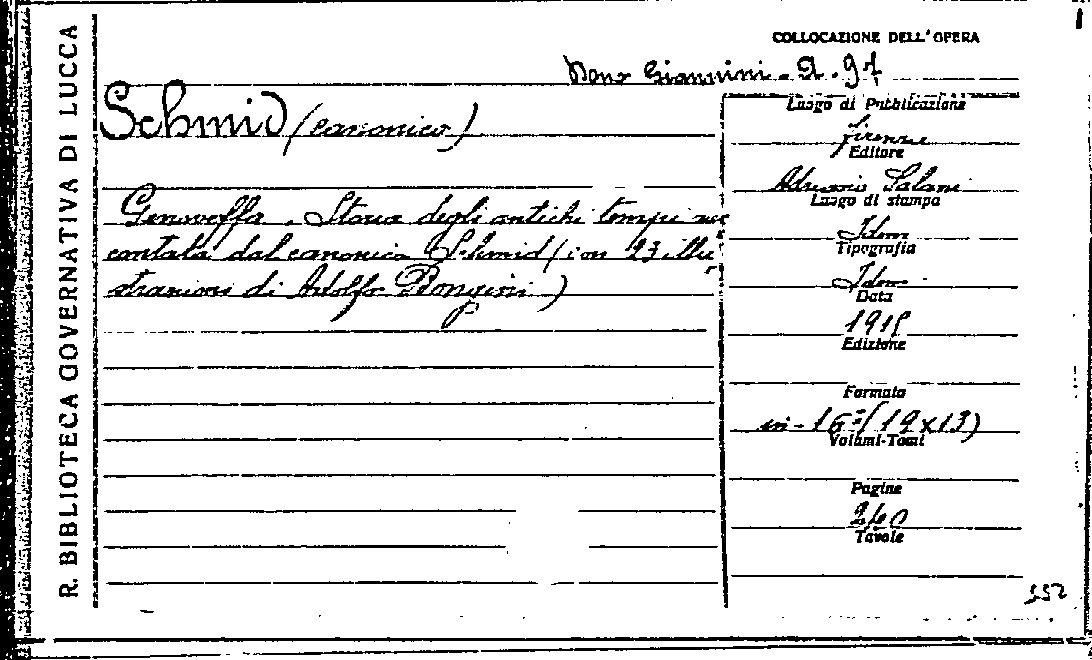 R. BIBLIOTECA GOVERNATIVA DI LUCCA
COLLOCAZIONE DELL'OPERA
Dono Giannini - A. 97
Schmid (canonico)
Genoveffa. Storia degli antichi tempi rac
contata dal canonico Schmid (con 23 illu
strazioni di Adolfo Bongini)
Luogo di Pubblicazione
Firenze
Editore
Adriano Salani
Luogo di stampa
Idem
Tipografia
Idem
Data
Edizione
Formato
in-16º (19x13)
Volumi-Tomi
Pagine
240
Tavole